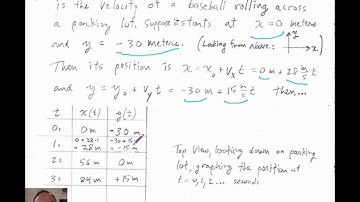 is the velocity of a baseball rolling across
a parking lot. Suppose it starts at x = 0 meters
and y = -30 meters. (Looking from above: y x)
Then its position is x = x₀ + vₓ t = 0 m + 28 m/s t
and y = y₀ + v_y t = -30 m + 15 m/s t then...
t x(t) y(t)
0s 0 m -30 m
1s 0 + 28·1 = 28 m -30 + 15 = -15 m
2s 56 m 0 m
3s 84 m +15 m
Top View, looking down on parking
lot, graphing the position at
t = 0, 1, 2... seconds